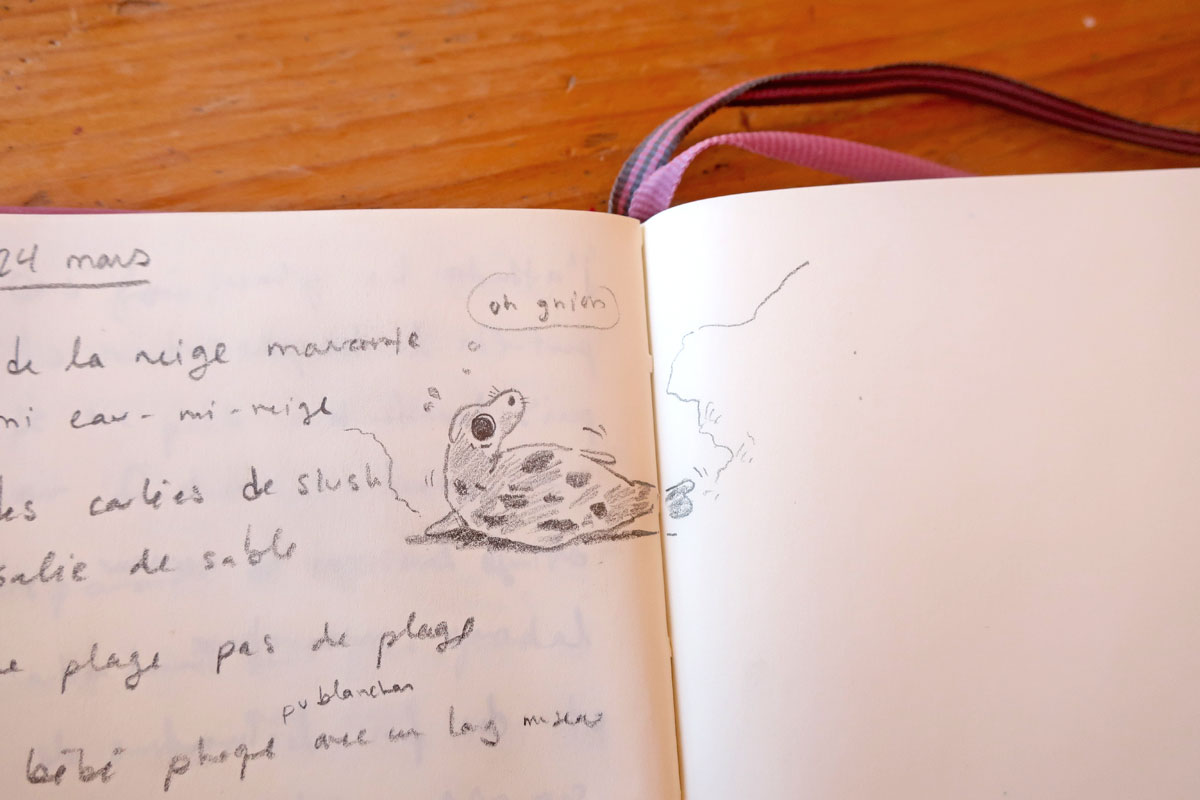 24 mars
oh gnion
de la neige marante
mi eau-mi-neige
des carlies de slush
salie de sable
plage pas de plage
pu blanchon
bébé phoque avec un long museau